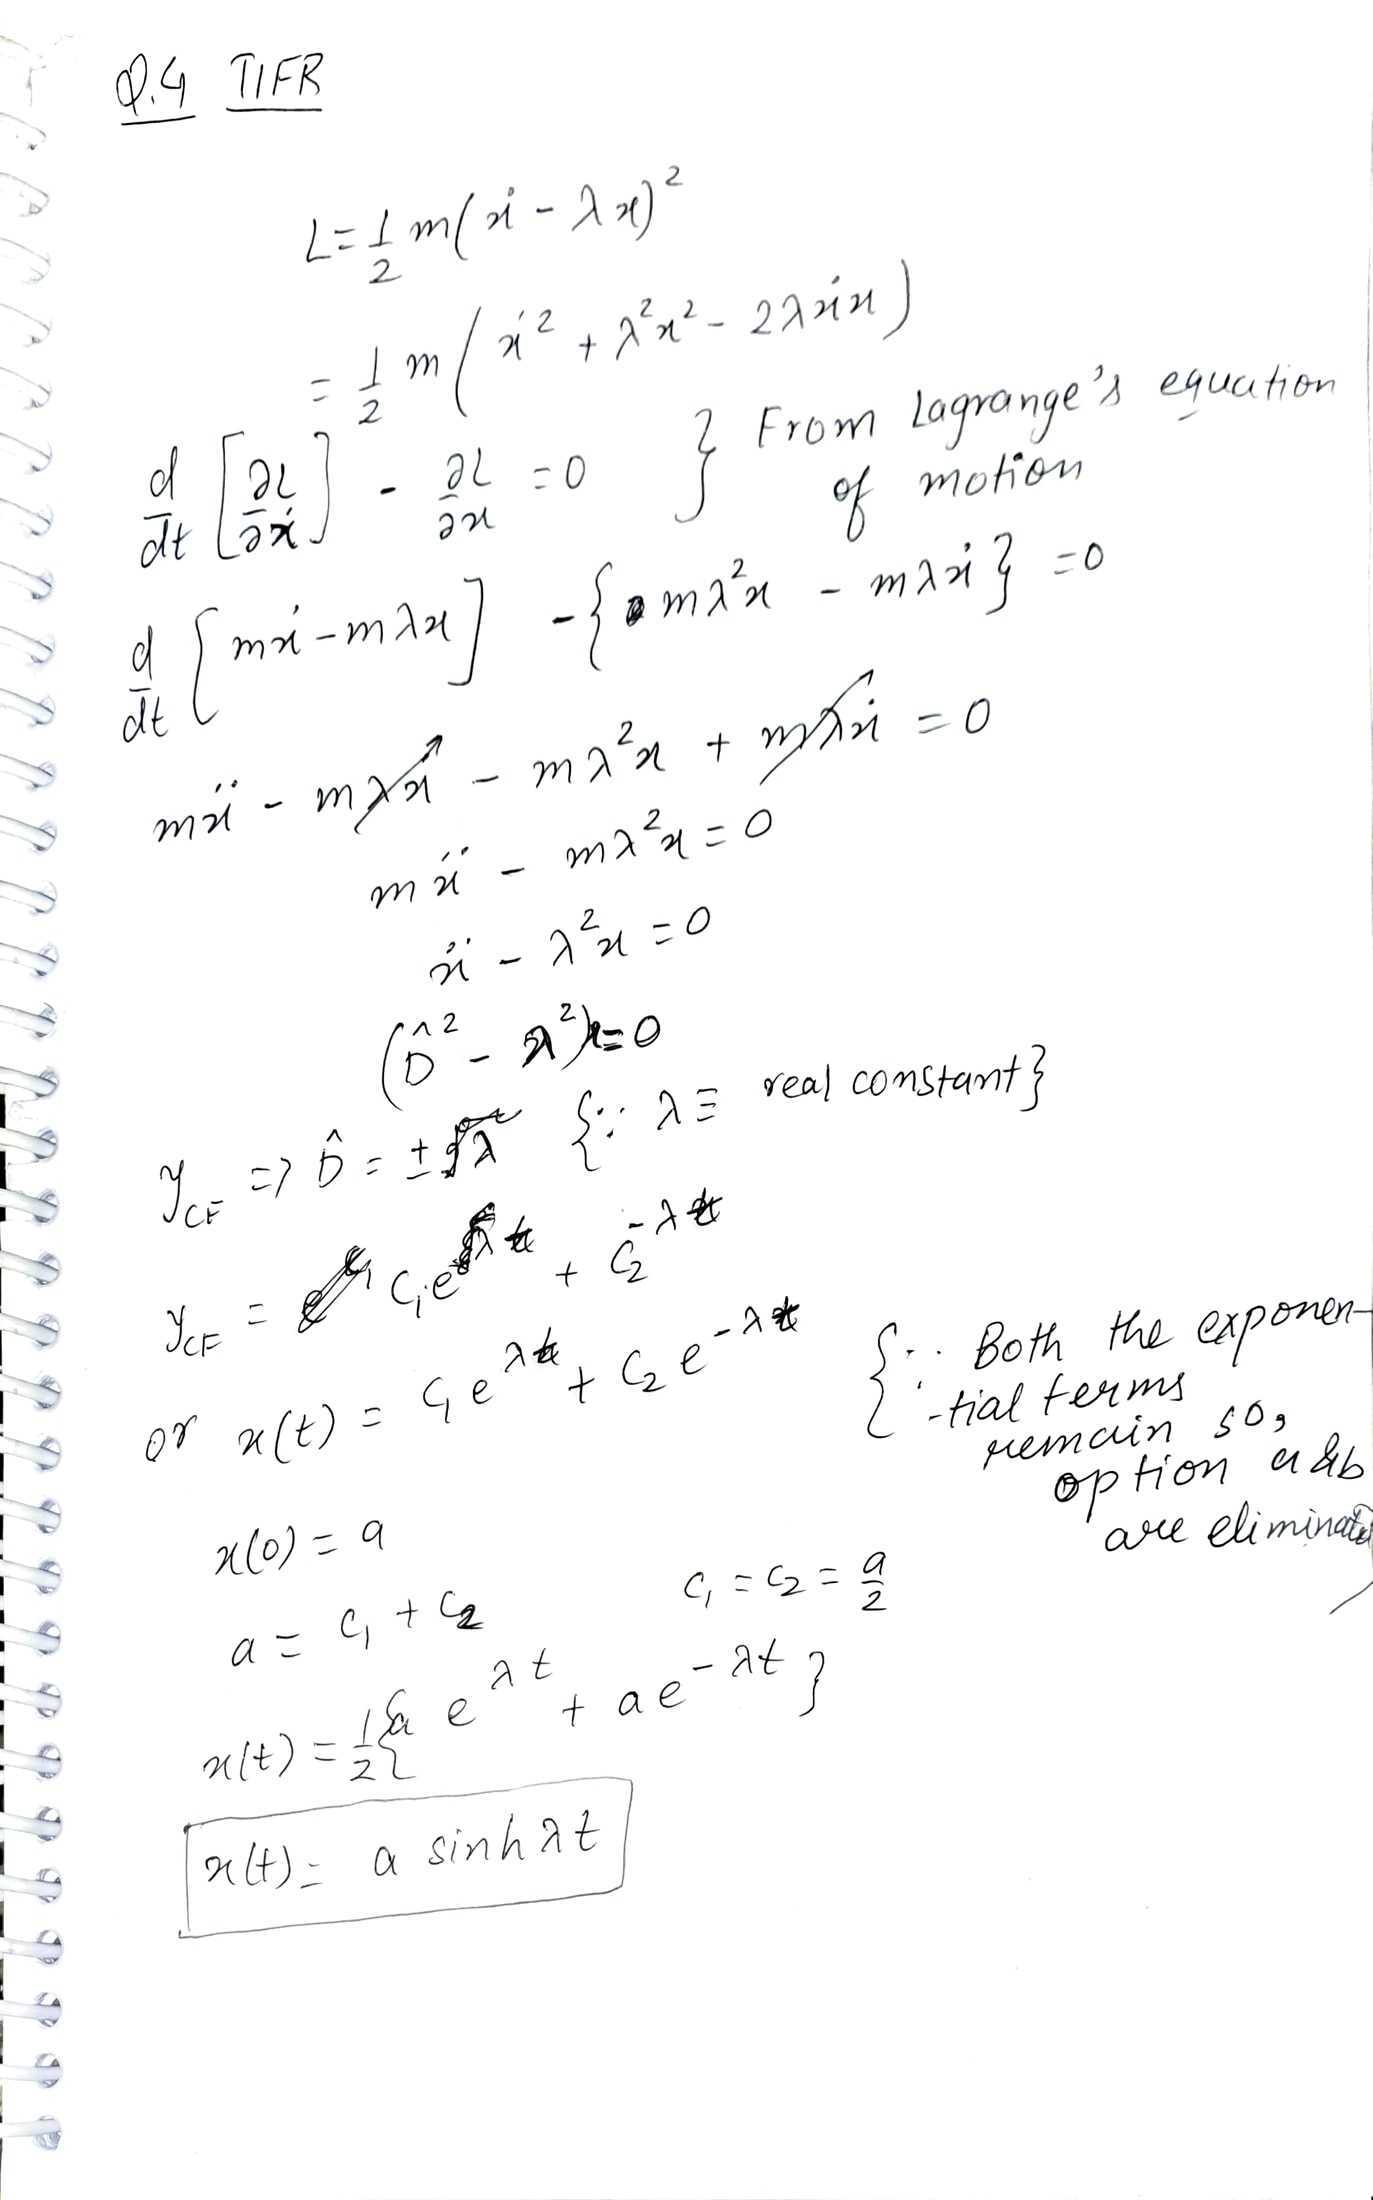 Q.4 TIFR
L = 1/2 m(ẋ - λx)²
= 1/2 m(ẋ² + λ²x² - 2λẋx)
d/dt [∂L/∂ẋ] - ∂L/∂x = 0 } From Lagrange's equation
of motion
d/dt [mẋ - mλx] - {mλ²x - mλẋ} = 0
mẍ - mλẋ - mλ²x + mλẋ = 0
mẍ - mλ²x = 0
ẍ - λ²x = 0
(D̂² - λ²)x = 0
y_CF => D̂ = ±λ {∵ λ ≡ real constant}
y_CF = C₁e^λt + C₂^-λt
or x(t) = C₁e^λt + C₂e^-λt {∵ Both the exponen-
-tial terms
remain so,
option a & b
are eliminated
x(0) = a
a = C₁ + C₂ C₁ = C₂ = a/2
x(t) = 1/2{a e^λt + ae^-λt}
x(t) = a sinh λt